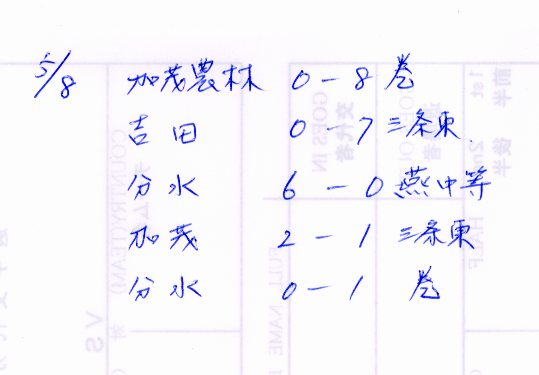 5/8 加茂農林 0-8 巻
吉田 0-7 三条東
分水 6-0 燕中等
加茂 2-1 三条東
分水 0-1 巻